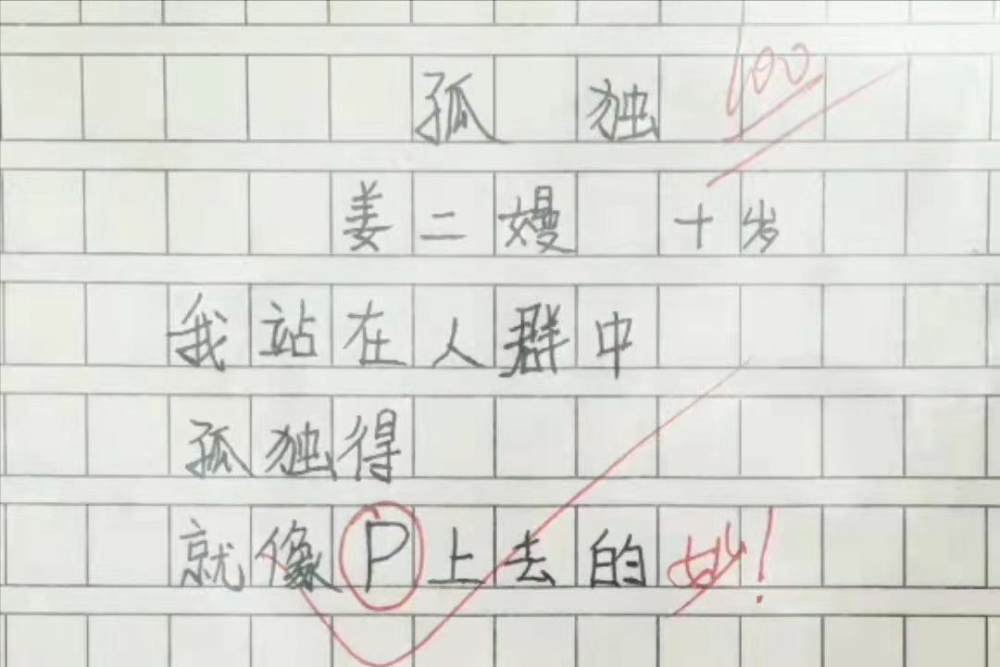 孤独 100
姜二嫚 十岁
我站在人群中
孤独得
就像P上去的 妙！